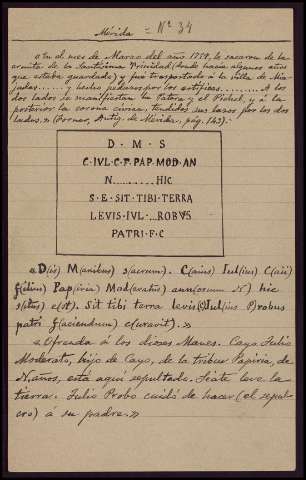 Mérida = Nº 34
«En el mes de Marzo del año 1779, se sacaron de la
ermita de la Santísima Trinidad (donde hacía algunos años
que estaba guardada) y fué trasportado á la villa de Mia-
jadas...... y hecho pedazos por los artífices........... A los
dos lados se manifiestan la Patera y el Pichel, y á la
posterior la corona cívica, tendidos sus lazos por los dos
lados.» (Forner, Antig. de Mérida, pág. 143).
D · M · S
C·IVL·C·F·PAP·MOD·AN
N...........HIC
S·E·SIT·TIBI·TERRA
LEVIS·IVL·...ROBVS
PATRI·F·C
«D(is) M(anibus) s(acrum). C(aius) Iul(ius) C(aii)
f(ilius) Pap(iria) Mod(eratus) ann(orum N) hic
s(itus) e(st). Sit tibi terra levis. Iul(ius P)robus
patri f(aciendum) c(uravit).»
«Ofrenda á los dioses Manes. Cayo Julio
Moderato, hijo de Cayo, de la tribu Papiria, de
N. años, está aquí sepultado. Séate leve la
tierra. Julio Probo cuidó de hacer (el sepul-
cro) á su padre.»